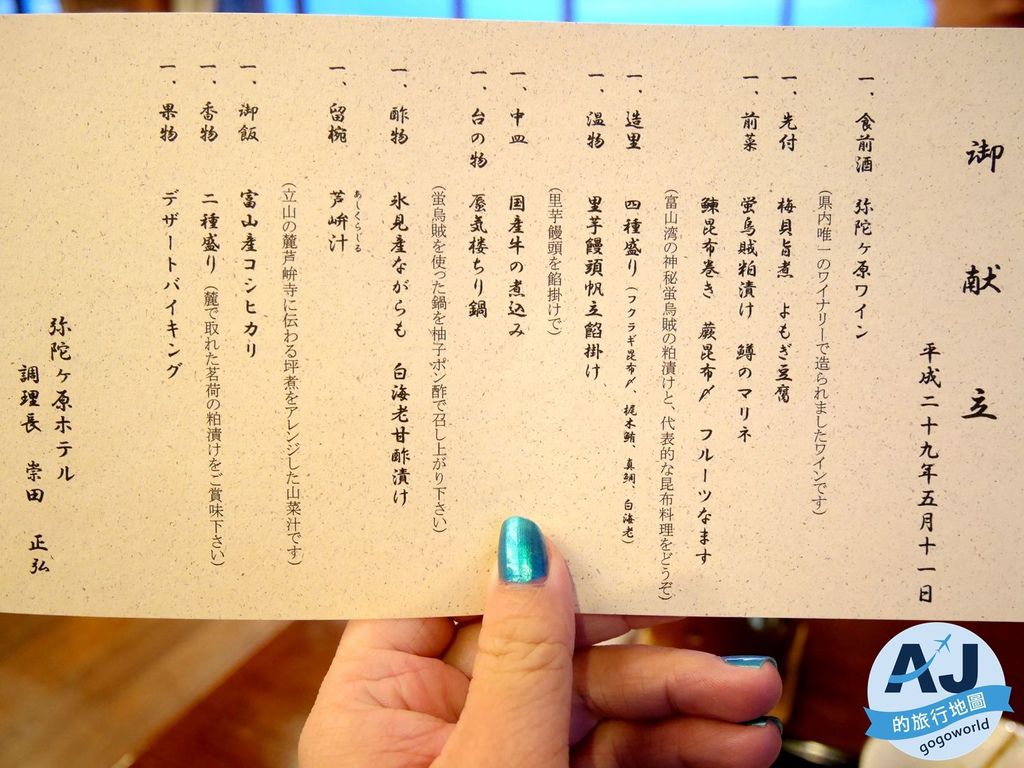 御献立
平成二十九年五月十一日
一、食前酒 弥陀ヶ原ワイン
(県内唯一のワイナリーで造られましたワインです)
一、先付 梅貝旨煮 よもぎ豆腐
一、前菜 蛍烏賊粕漬け 鱒のマリネ
鰊昆布巻き 蕨昆布〆 フルーツなます
(富山湾の神秘蛍烏賊の粕漬けと、代表的な昆布料理をどうぞ)
一、造里 四種盛り(フクラギ昆布〆、梶木鮪、真鯛、白海老)
一、温物 里芋饅頭帆立餡掛け
(里芋饅頭を餡掛けで)
一、中皿 国産牛の煮込み
一、台の物 蜃気楼ちり鍋
(蛍烏賊を使った鍋を柚子ポン酢で召し上がり下さい)
一、酢物 氷見産ながらも 白海老甘酢漬け
一、留椀 芦峅汁
あしくらじる
(立山の麓芦峅寺に伝わる坪煮をアレンジした山菜汁です)
一、御飯 富山産コシヒカリ
一、香物 二種盛り(麓で取れた茗荷の粕漬けをご賞味下さい)
一、果物 デザートバイキング
弥陀ヶ原ホテル
調理長 崇田 正弘
AJ
的旅行地圖
gogoworld